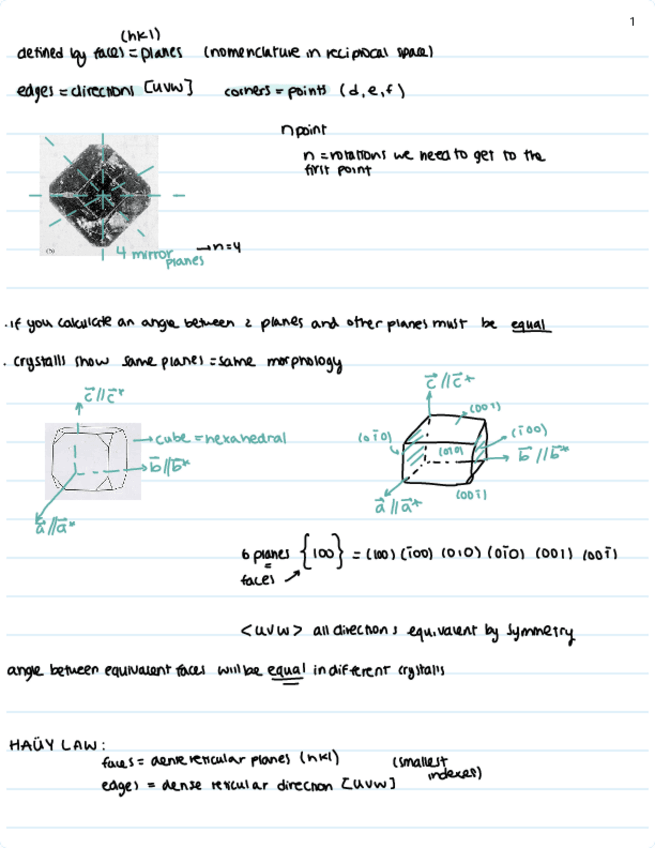 1
(hkl)
defined by faces = planes (nomenclature in reciprocal space)
edges = directions [uvw] corners = points (d,e,f)
n point
n = rotations we need to get to the
first point
4 mirror planes → n=4
. if you calculate an angle between 2 planes and other planes must be equal
. crystalls show same planes = same morphology
c⃗//c⃗*
→ cube = hexahedral
b⃗//b⃗*
a⃗//a⃗*
c⃗//c⃗*
(001̄)
(01̄0)
(1̄00)
(010)
b⃗//b⃗*
(001̄)
a⃗//a⃗*
6 planes {100} = (100) (1̄00) (010) (01̄0) (001) (001̄)
=
faces
<uvw> all directions equivalent by symmetry
angle between equivalent faces will be equal in different crystalls
HAÜY LAW:
faces = dense reticular planes (hkl) (smallest
edges = dense reticular direction [uvw] indexes)